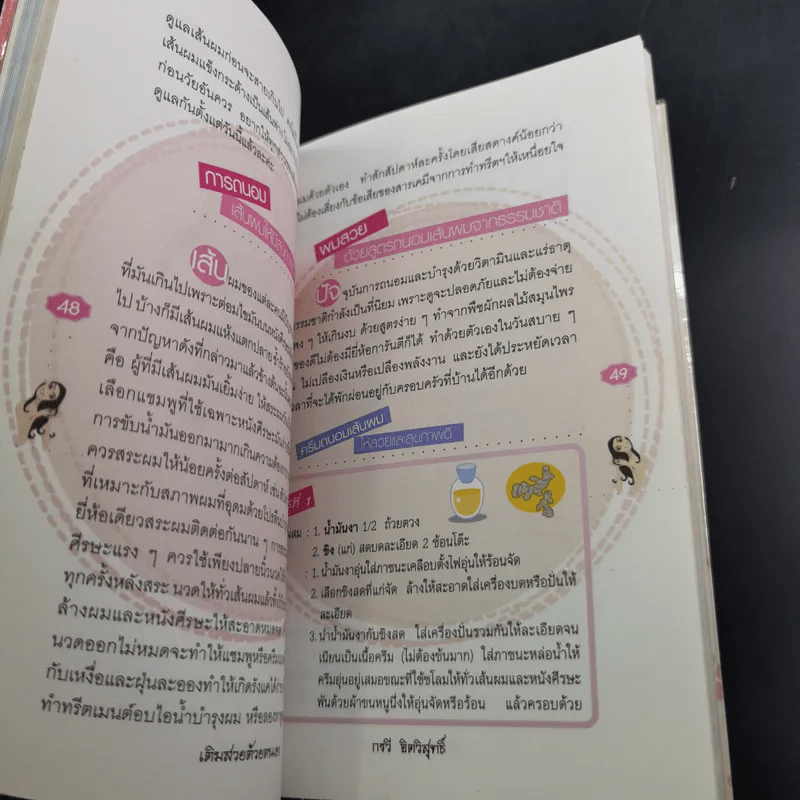 ดูแลเส้นผมก่อนจะสายเกินไป
เส้นผมแข็งกระด้างเป็นเส้น
ก่อนวัยอันควร อยากให้
ดูแลกันตั้งแต่วันนี้แล้วละค่ะ
การถนอม
เส้นผมให้
เส้นผมของแต่ละคน
ที่มันเกินไปเพราะต่อมไขมันบนหนังศีรษะ
ไป บ้างก็มีเส้นผมแห้งแตกปลาย
จากปัญหาดังที่กล่าวมาแล้วข้างต้น
คือ ผู้ที่มีเส้นผมมันเยิ้มง่าย ให้สระ
เลือกแชมพูที่ใช้เฉพาะหนังศีรษะมัน
การขับน้ำมันออกมามากเกินความต้องการ
ควรสระผมให้น้อยครั้งต่อสัปดาห์ เช่น
ที่เหมาะกับสภาพผมที่อุดมด้วยโปรตีน
ยี่ห้อเดียวสระผมติดต่อกันนาน ๆ การ
ศีรษะแรง ๆ ควรใช้เพียงปลายนิ้วนวด
ทุกครั้งหลังสระ นวดให้ทั่วเส้นผมแล้วทิ้งไว้
ล้างผมและหนังศีรษะให้สะอาดหมดจด
นวดออกไม่หมดจะทำให้แชมพูหรือครีม
กับเหงื่อและฝุ่นละอองทำให้เกิดรังแคได้ง่าย
ทำทรีตเมนต์อบไอน้ำบำรุงผม หรือ
48
เติมสวยด้วยตนเอง
ผมด้วยตัวเอง ทำสักสัปดาห์ละครั้งโดยเสียสตางค์น้อยกว่า
ไม่ต้องเสี่ยงกับข้อเสียของสารเคมีจากการทำทรีตฯให้เหนื่อยใจ
ผมสวย
ด้วยสูตรถนอมเส้นผมจากธรรมชาติ
ปัจจุบันการถนอมและบำรุงด้วยวิตามินและแร่ธาตุ
ธรรมชาติกำลังเป็นที่นิยม เพราะดูจะปลอดภัยและไม่ต้องจ่าย
พง ๆ ให้เกินงบ ด้วยสูตรง่าย ๆ ทำจากพืชผักผลไม้สมุนไพร
ของดีไม่ต้องมียี่ห้อการันตีก็ได้ ทำด้วยตัวเองในวันสบาย ๆ
ไม่เปลืองเงินหรือเปลืองพลังงาน และยังได้ประหยัดเวลา
เวลาที่จะได้พักผ่อนอยู่กับครอบครัวที่บ้านได้อีกด้วย
49
ครีมถนอมเส้นผม
ให้สวยและสุขภาพดี
ที่ 1
ผสม : 1. น้ำมันงา 1/2 ถ้วยตวง
2. ขิง (แก่) สดบดละเอียด 2 ช้อนโต๊ะ
: 1. น้ำมันงาอุ่นใส่ภาชนะเคลือบตั้งไฟอุ่นให้ร้อนจัด
2. เลือกขิงสดที่แก่จัด ล้างให้สะอาดใส่เครื่องบดหรือปั่นให้
ละเอียด
3. นำน้ำมันงากับขิงสด ใส่เครื่องปั่นรวมกันให้ละเอียดจน
เนียนเป็นเนื้อครีม (ไม่ต้องข้นมาก) ใส่ภาชนะหล่อน้ำให้
ครีมอุ่นอยู่เสมอขณะที่ใช้ชโลมให้ทั่วเส้นผมและหนังศีรษะ
พันด้วยผ้าขนหนูนึ่งให้อุ่นจัดหรือร้อน แล้วครอบด้วย
กรวี ฮิตวิสุทธิ์